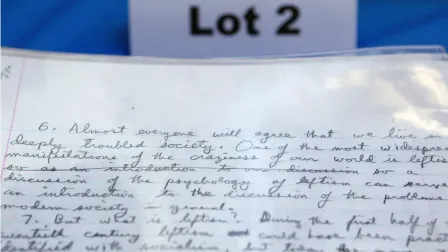 Lot 2
6. Almost everyone will agree that we live in
deeply troubled society. One of the most widespre
manifestations of the craziness of our world is leftis
so as an introduction to our discussion so a
discussion of the psychology of leftism can serve
an introduction to the discussion of the problems
modern society in general.
7. But what is leftism? During the first half of
twentieth century leftism could have been pra
identified with socialism, but today the